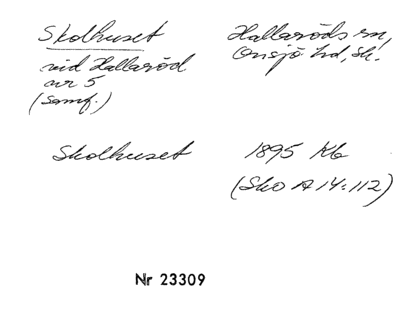 Skolhuset
vid Hallaröd
nr 5
(samf.)
Hallaröds sn,
Onsjö hd, Sk.
Skolhuset
1895 Kb
(Sko A 14:112)
Nr 23309